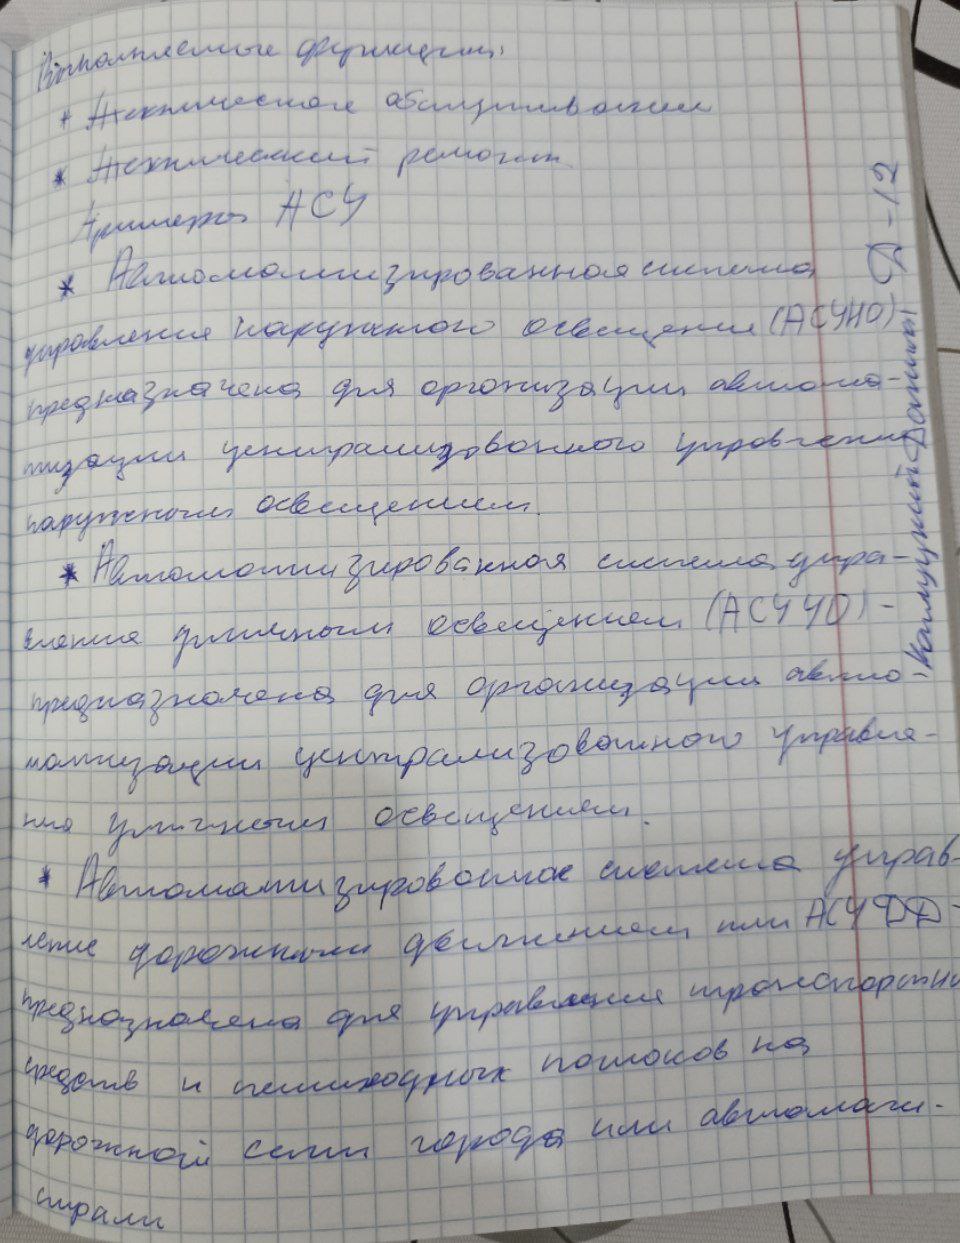 Выполняемые функции:
* Техническое обслуживание
* Технический ремонт
Примеры АСУ
* Автоматизированная система
управления наружного освещения (АСУНО)-
предназначена для организации автома-
тизации централизованного управления
наружным освещением.
* Автоматизированная система упра-
вления уличным освещением (АСУУО) -
предназначена для организации авто-
матизации централизованного управле-
ния уличным освещением.
* Автоматизированное система управ-
ление дорожным движением или АСУДД-
предназначена для управления транспортных
средств и пешеходных потоков на
дорожной сети города или автомаги-
страли
Даниил Д-12